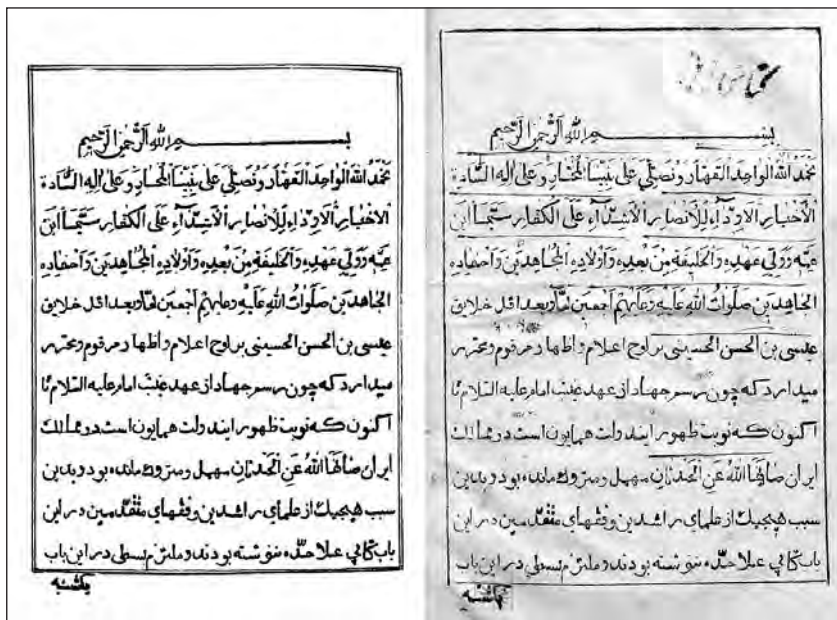 بسم الله الرحمن الرحیم
نحمد الله الواحد القهار و نصلی علی نبینا المختار و علی اله السادة
الاخیار الاوداء للانصار الاشداء علی الکفار سیما ابن
عمه و ولی عهده و الخلیفة من بعده و اولاده المجاهدین و احفاده
الجاهدین صلوات الله علیه و علیهم اجمعین اما وبعد اقل خلایق
عیسی بن الحسن الحسینی اعلام و اظهار مرقوم و محرر
میدارد که چون رسم جهاد از عهد غیبت امام علیه السلام تا
اکنون که نوبت ظهور ایندولت همایون است در ممالک
ایران صانها الله عن الحدثان مهمل و متروک مانده بود و بدین
سبب هیچیک از علمای راشدین و فقهای متقدمین در این
باب کتابی علاحده ننوشته بودند و ملتزم بسطی در این باب
نگشته
بسم الله الرحمن الرحیم
نحمد الله الواحد القهار و نصلی علی نبینا المختار و علی اله السادة
الاخیار الاوداء للانصار الاشداء علی الکفار سیما ابن
عمه و ولی عهده و الخلیفة من بعده و اولاده المجاهدین و احفاده
الجاهدین صلوات الله علیه و علیهم اجمعین اما وبعد اقل خلایق
عیسی بن الحسن الحسینی اعلام و اظهار مرقوم و محرر
میدارد که چون رسم جهاد از عهد غیبت امام علیه السلام تا
اکنون که نوبت ظهور ایندولت همایون است در ممالک
ایران صانها الله عن الحدثان مهمل و متروک مانده بود و بدین
سبب هیچیک از علمای راشدین و فقهای متقدمین در این
باب کتابی علاحده ننوشته بودند و ملتزم بسطی در این باب
نگشته